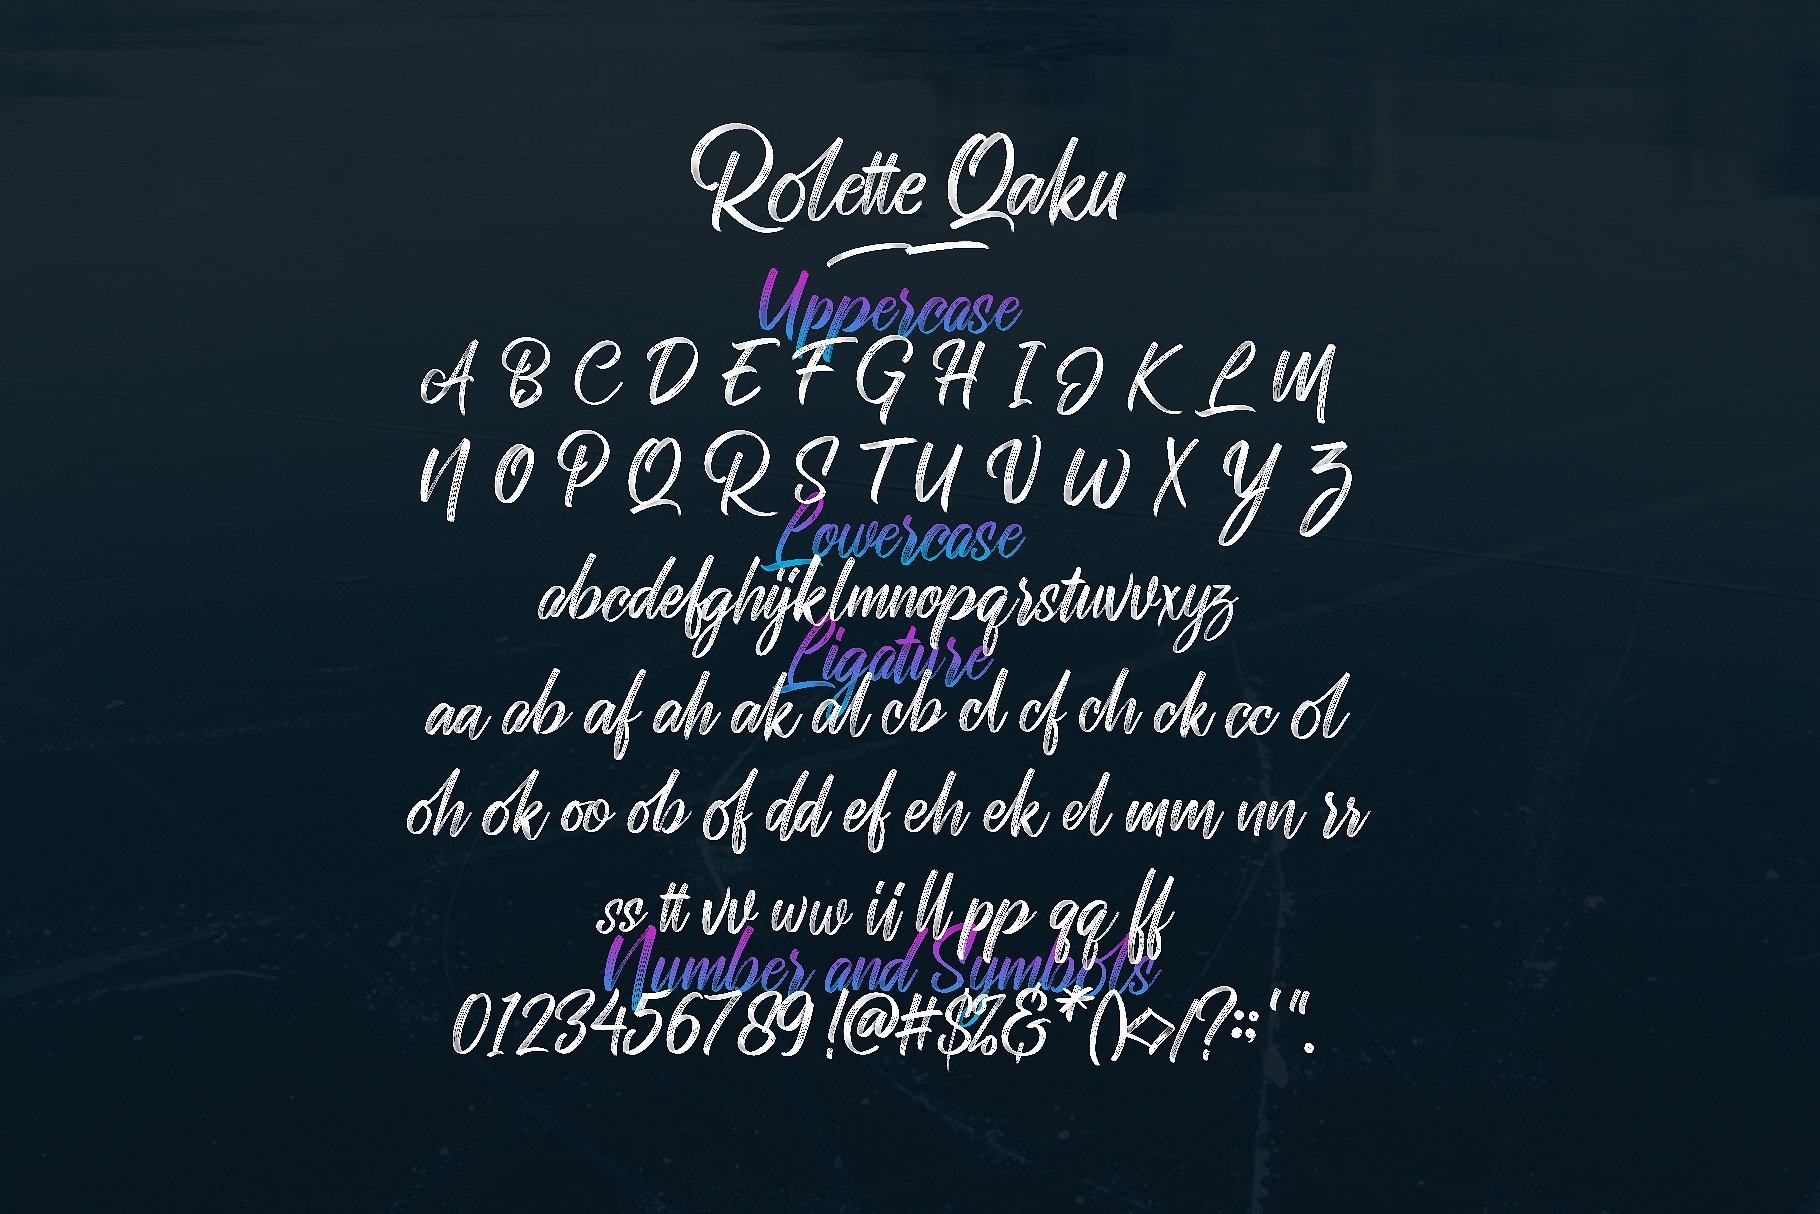 Rolette Qaku
Uppercase
A B C D E F G H I J K L M
N O P Q R S T U V W X Y Z
Lowercase
abcdefghijklmnopqrstuvwxyz
Ligature
aa ab af ah ak al cb cl cf ch ck cc ol
oh ok oo ob of dd ef eh ek el mm nn rr
ss tt vv ww ii ll pp qq ff
Number and Symbols
0123456789!@#$%&*()<>/?:;'".